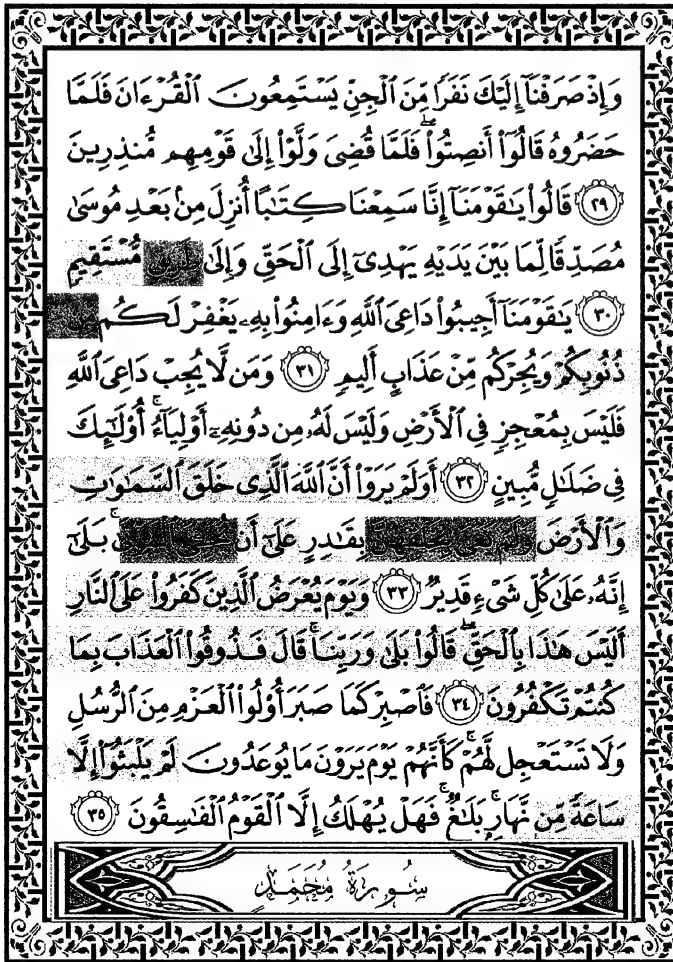 وَإِذْ صَرَفْنَآ إِلَيْكَ نَفَرًا مِّنَ ٱلْجِنِّ يَسْتَمِعُونَ ٱلْقُرْءَانَ فَلَمَّا
حَضَرُوهُ قَالُوٓا۟ أَنصِتُوا۟ ۖ فَلَمَّا قُضِىَ وَلَّوْا۟ إِلَىٰ قَوْمِهِم مُّنذِرِينَ
٢٩ قَالُوا۟ يَـٰقَوْمَنَآ إِنَّا سَمِعْنَا كِتَـٰبًا أُنزِلَ مِنۢ بَعْدِ مُوسَىٰ
مُصَدِّقًا لِّمَا بَيْنَ يَدَيْهِ يَهْدِىٓ إِلَى ٱلْحَقِّ وَإِلَىٰ طَرِيقٍ مُّسْتَقِيمٍ
٣٠ يَـٰقَوْمَنَآ أَجِيبُوا۟ دَاعِىَ ٱللَّهِ وَءَامِنُوا۟ بِهِۦ يَغْفِرْ لَكُم
ذُنُوبِكُمْ وَيُجِرْكُم مِّنْ عَذَابٍ أَلِيمٍ ٣١ وَمَن لَّا يُجِبْ دَاعِىَ ٱللَّهِ
فَلَيْسَ بِمُعْجِزٍ فِى ٱلْأَرْضِ وَلَيْسَ لَهُۥ مِن دُونِهِۦٓ أَوْلِيَآءُ ۚ أُو۟لَـٰٓئِكَ
فِى ضَلَـٰلٍ مُّبِينٍ ٣٢ أَوَلَمْ يَرَوْا۟ أَنَّ ٱللَّهَ ٱلَّذِى خَلَقَ ٱلسَّمَـٰوَٰتِ
وَٱلْأَرْضَ وَلَمْ يَعْىَ بِخَلْقِهِنَّ بِقَـٰدِرٍ عَلَىٰٓ أَن يُحْـِۧىَ ٱلْمَوْتَىٰ ۚ بَلَىٰٓ
إِنَّهُۥ عَلَىٰ كُلِّ شَىْءٍ قَدِيرٌ ٣٣ وَيَوْمَ يُعْرَضُ ٱلَّذِينَ كَفَرُوا۟ عَلَى ٱلنَّارِ
أَلَيْسَ هَـٰذَا بِٱلْحَقِّ ۖ قَالُوا۟ بَلَىٰ وَرَبِّنَا ۚ قَالَ فَذُوقُوا۟ ٱلْعَذَابَ بِمَا
كُنتُمْ تَكْفُرُونَ ٣٤ فَٱصْبِرْ كَمَا صَبَرَ أُو۟لُوا۟ ٱلْعَزْمِ مِنَ ٱلرُّسُلِ
وَلَا تَسْتَعْجِل لَّهُمْ ۚ كَأَنَّهُمْ يَوْمَ يَرَوْنَ مَا يُوعَدُونَ لَمْ يَلْبَثُوٓا۟ إِلَّا
سَاعَةً مِّن نَّهَارٍۭ ۚ بَلَـٰغٌ ۚ فَهَلْ يُهْلَكُ إِلَّا ٱلْقَوْمُ ٱلْفَـٰسِقُونَ ٣٥
سُورَةُ مُحَمَّدٍ